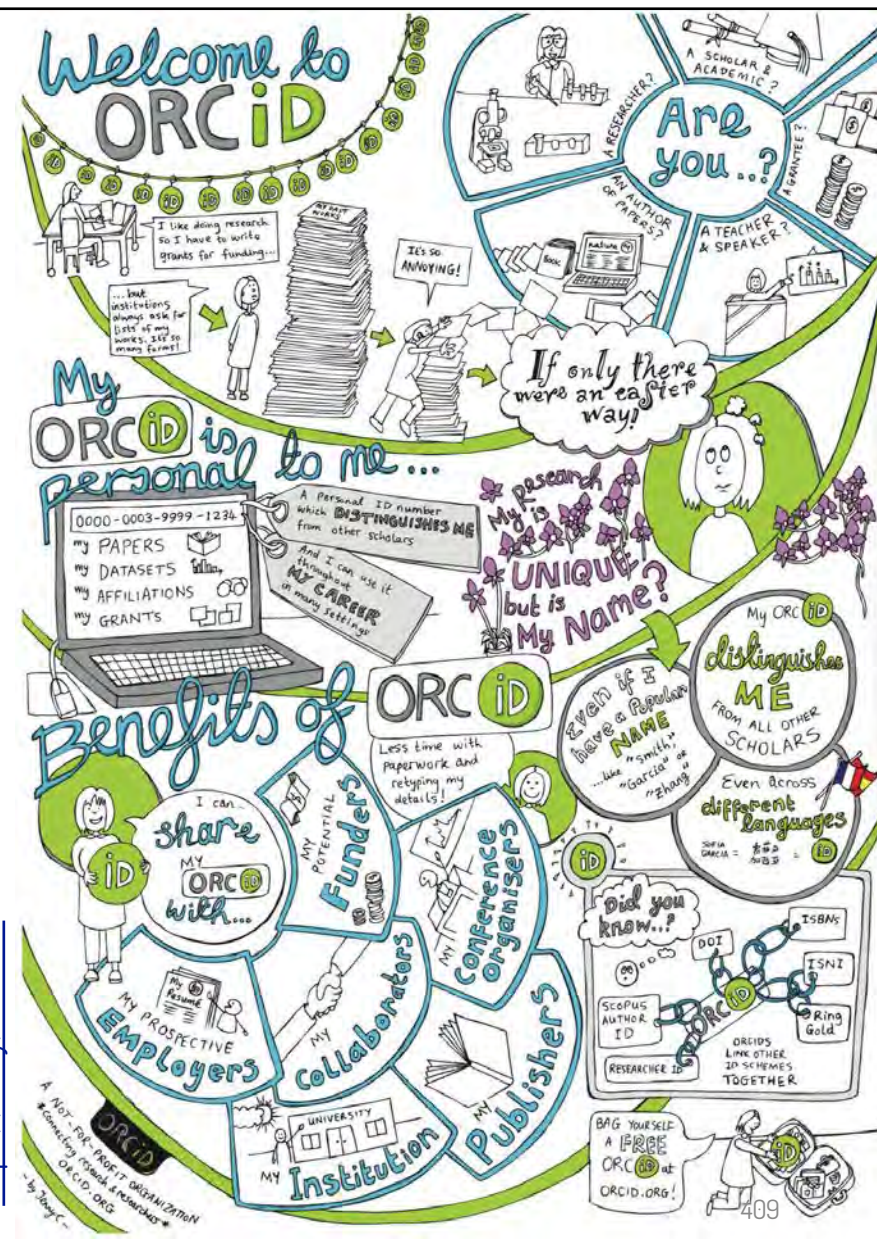 Welcome to
ORCiD
iD iD iD iD iD iD iD iD iD
I like doing research
so I have to write
grants for funding...
...but
institutions
always ask for
lists of my
works. It's so
many forms!
MY PAST
WORKS
It's so
ANNOYING!
If only there
were an easier
way!
Are
you..?
A RESEARCHER?
A SCHOLAR &
ACADEMIC?
A GRANTEE?
AN AUTHOR
OF PAPERS?
BOOK
nature
A TEACHER
& SPEAKER?
My
ORCiD is
personal to me...
0000-0003-9999-1234
my PAPERS
my DATASETS
my AFFILIATIONS
my GRANTS
A Personal ID number
which DISTINGUISHES ME
from other scholars
And I can use it
throughout
MY CAREER
in many settings
My research
is
UNIQUE
but is
My Name?
My ORCiD
distinguishes
ME
FROM ALL OTHER
SCHOLARS
Even if I
have a Popular
NAME
...like "Smith"
"Garcia" or
"Zhang"
Even across
different
languages
SOFIA
GARCIA =
= iD
Benefits of
ORCiD
Less time with
paperwork and
retyping my
details!
iD
I can
share
MY
ORCiD
with...
MY POTENTIAL
Funders
MY
Conference
Organisers
My
Resumé
MY PROSPECTIVE
EMPLOYERS
MY
Collaborators
MY
Publishers
UNIVERSITY
MY
Institution
iD
Did you
know..?
DOI
ISBNs
ISNI
Ring
Gold
SCOPUS
AUTHOR
ID
RESEARCHER ID
ORCiD
ORCIDS
LINK OTHER
ID SCHEMES
TOGETHER
BAG YOURSELF
A FREE
ORCiD at
ORCID.ORG!
iD
ORCiD
A NOT-FOR-PROFIT ORGANIZATION
*connecting research & researchers*
ORCID.ORG
~ by Jenny C ~
409